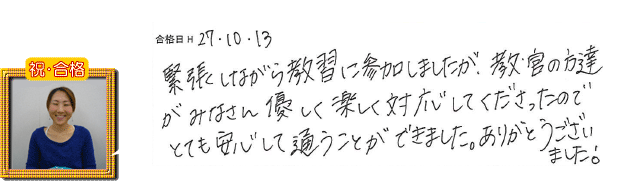 合格日 H 27・10・13
祝・合格
緊張しながら教習に参加しましたが、教官の方達
がみなさん優しく楽しく対応してくださったので
とても安心して通うことができました。ありがとうござい
ました！